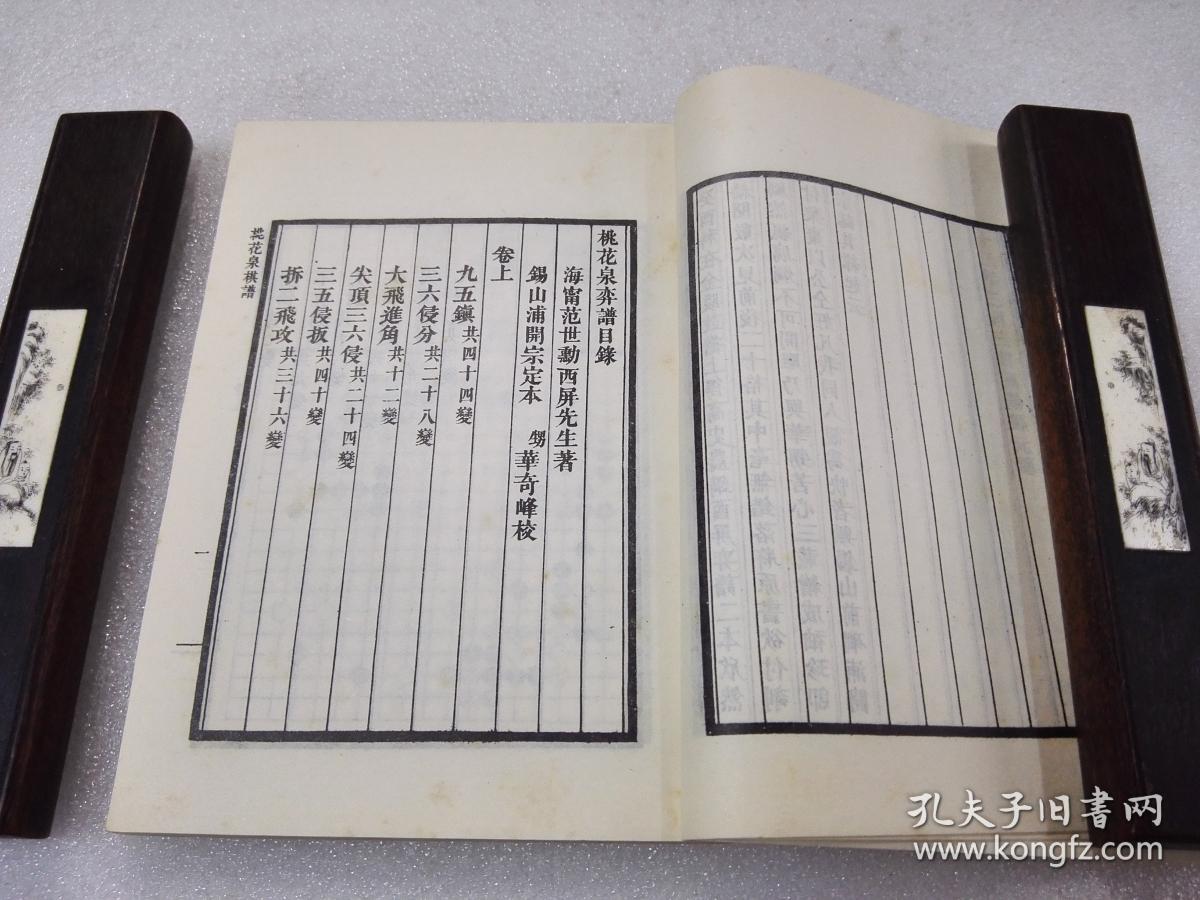 桃花泉弈譜目錄
海甯范世勳西屏先生著
錫山浦開宗定本 甥華奇峰校
卷上
九五鎮共四十四變
三六侵分共二十八變
大飛進角共十二變
尖頂三六侵共二十四變
三五侵扳共四十變
拆二飛攻共三十六變
桃花泉棋譜
一
孔夫子旧书网
www.kongfz.com